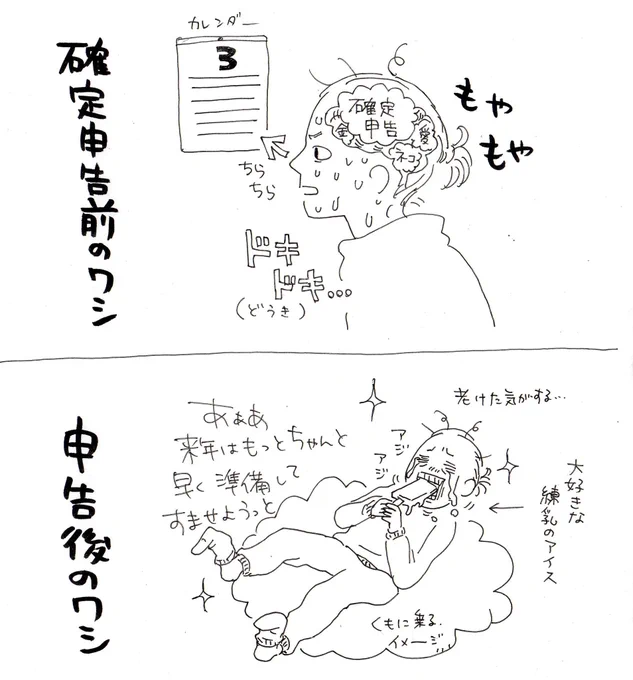 確定申告前のワシ
カレンダー
3
ちら
ちら
確定
申告
金
愛
ネコ
もや
もや
ドキ
ドキ...
(どうき)
申告後のワシ
あぁあ
来年はもっとちゃんと
早く準備して
すませようっと
アジ
アジ
老けた気がする...
大好きな
練乳のアイス
くもに乗る
イメージ